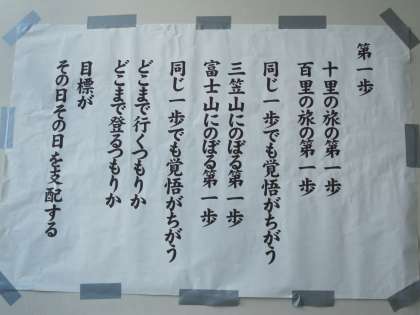 第一歩
十里の旅の第一歩
百里の旅の第一歩
同じ一歩でも覚悟がちがう
三笠山にのぼる第一歩
富士山にのぼる第一歩
同じ一歩でも覚悟がちがう
どこまで行くつもりか
どこまで登るつもりか
目標が
その日その日を支配する